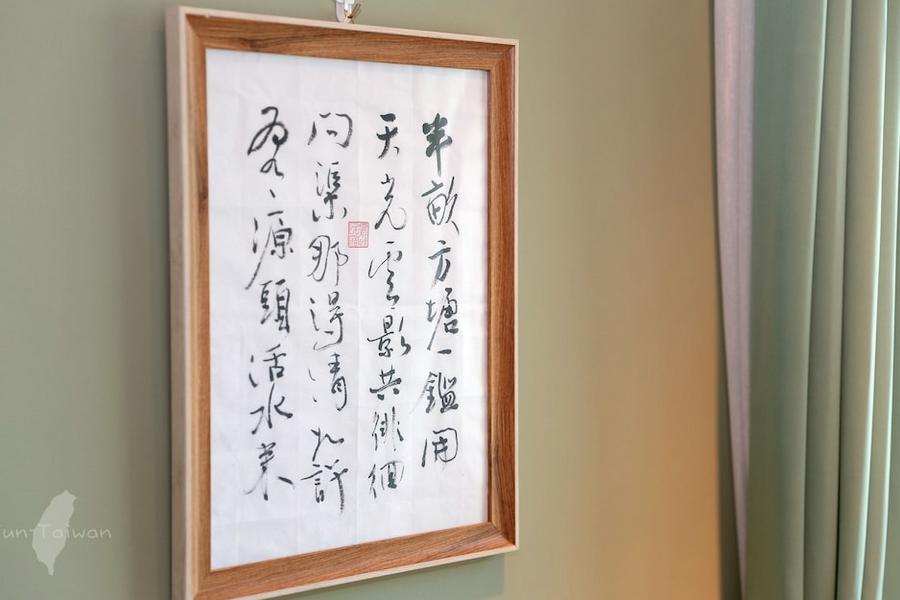 半畝方塘一鑑開
天光雲影共徘徊
問渠那得清如許
為有源頭活水來
un-Taiwan